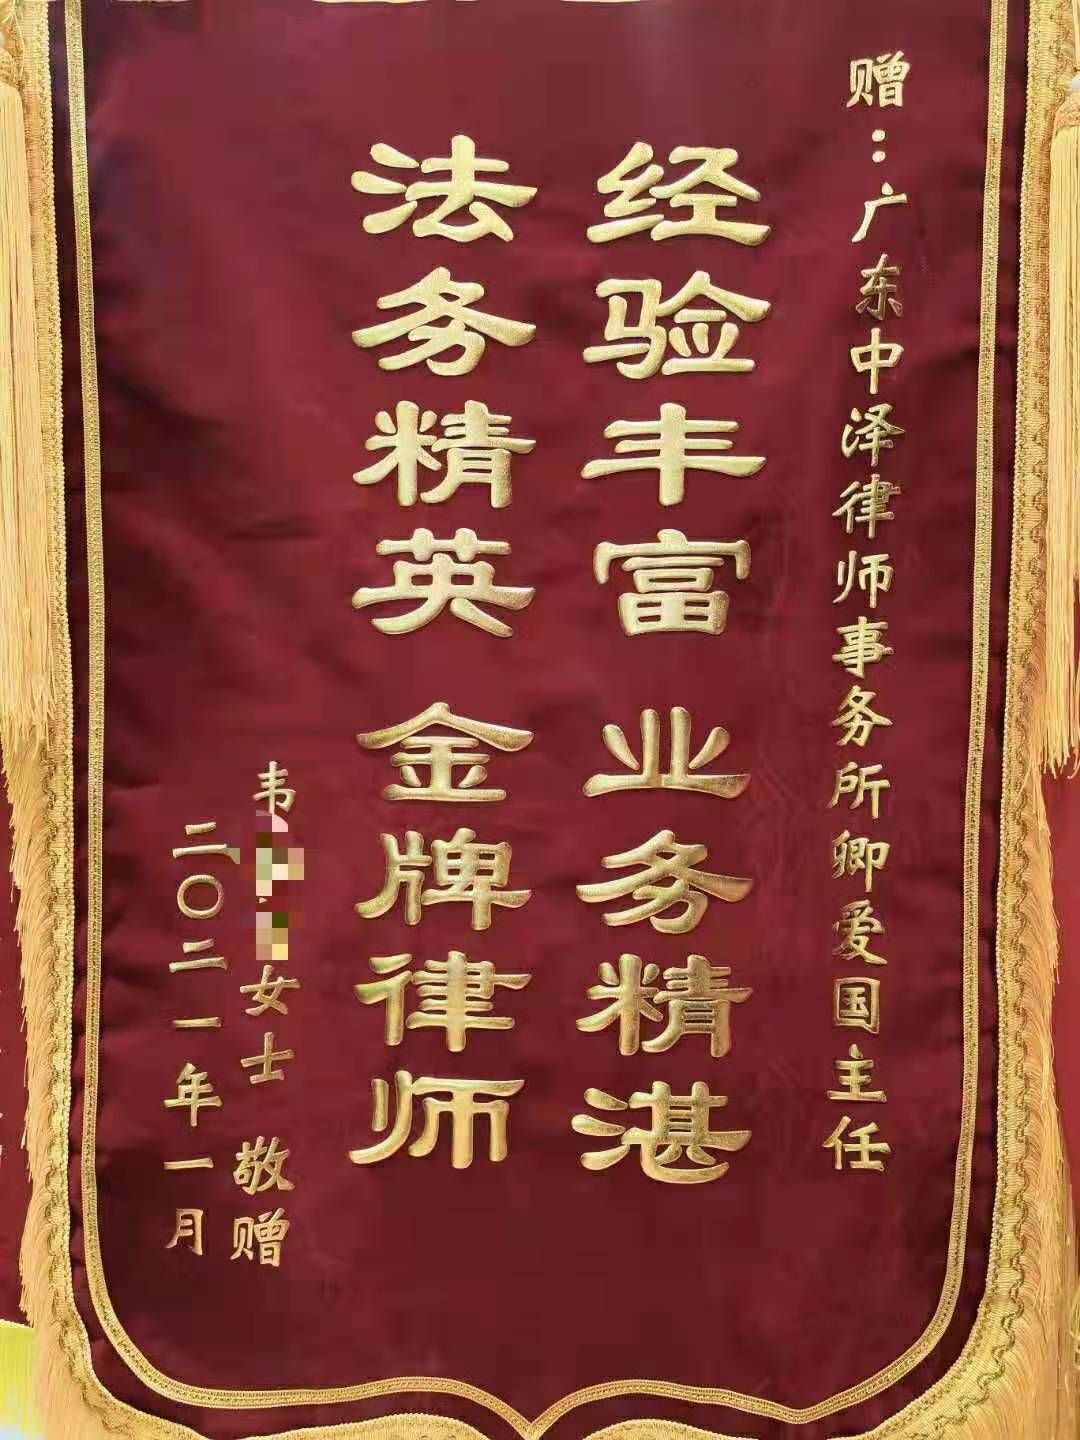 赠：广东中泽律师事务所卿爱国主任
经验丰富 业务精湛
法务精英 金牌律师
韦 女士 敬赠
二〇二一年一月